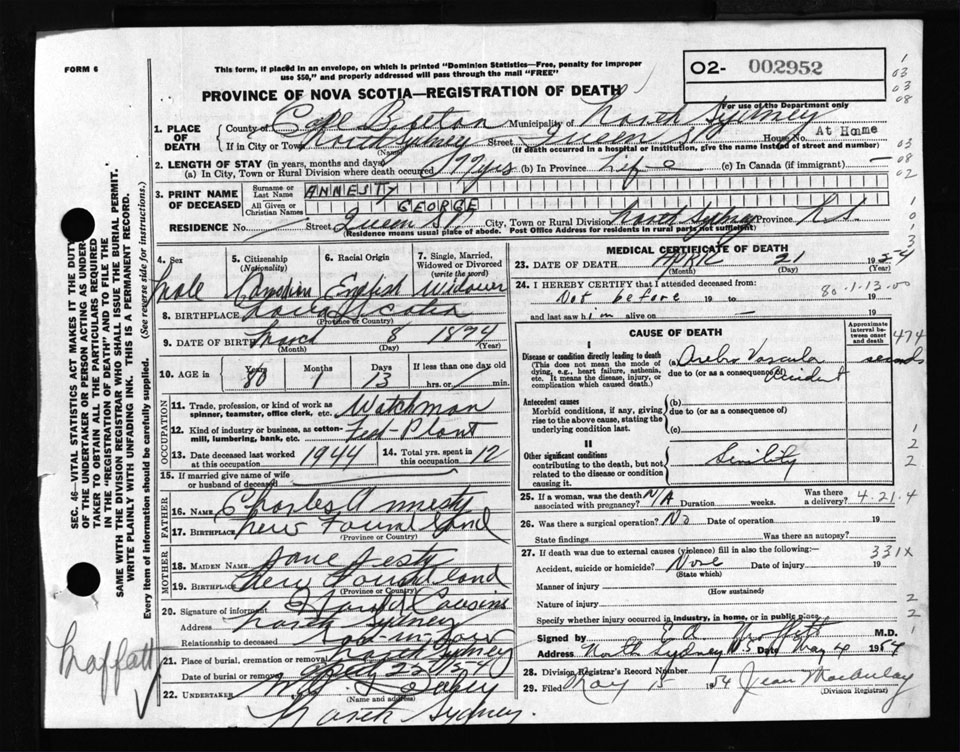 FORM 6
This form, if placed in an envelope, on which is printed "Dominion Statistics—Free, penalty for improper
use $50," and properly addressed will pass through the mail "FREE"
O2- 002952
PROVINCE OF NOVA SCOTIA—REGISTRATION OF DEATH
For use of the Department only
1. PLACE OF DEATH
County of Cape Breton Municipality of North Sydney
If in City or Town North Sydney Street Queen St House No. At Home
(Name) (If death occurred in a hospital or institution, give the name instead of street and number)
2. LENGTH OF STAY (in years, months and days)
(a) In City, Town or Rural Division where death occurred 77 yrs (b) In Province Life (c) In Canada (if immigrant) —
3. PRINT NAME OF DECEASED
Surname or Last Name ANNESTY
All Given or Christian Names GEORGE
RESIDENCE No. Street Queen St. City, Town or Rural Division North Sydney Province N.S.
(Residence means usual place of abode. Post Office Address for residents in rural parts not sufficient)
4. Sex
male
5. Citizenship (Nationality)
Canadian
6. Racial Origin
English
7. Single, Married, Widowed or Divorced (write the word)
Widower
8. BIRTHPLACE Nova Scotia
(Province or Country)
9. DATE OF BIRTH March 8 1874
(Month) (Day) (Year)
10. AGE in
Years Months Days If less than one day old
80 1 13 hrs. or min.
OCCUPATION
11. Trade, profession or kind of work as spinner, teamster, office clerk, etc. Watchman
12. Kind of industry or business, as cotton-mill, lumbering, bank, etc. Feed-Plant
13. Date deceased last worked at this occupation 1944 14. Total yrs. spent in this occupation 12
15. If married give name of wife or husband of deceased
FATHER
16. NAME Charles Annesty
17. BIRTHPLACE New Foundland
(Province or Country)
MOTHER
18. MAIDEN NAME Jane
19. BIRTHPLACE New Foundland
(Province or Country)
20. Signature of informant Cousins
Address North Sydney
Relationship to deceased
21. Place of burial, cremation or removal North Sydney
Date of burial or removal
22. UNDERTAKER
(Name and address)
North Sydney.
MEDICAL CERTIFICATE OF DEATH
23. DATE OF DEATH APRIL 21 1954
(Month) (Day) (Year)
24. I HEREBY CERTIFY that I attended deceased from:
Not before 19 to 19
80-1-13-00
and last saw him alive on — 19
CAUSE OF DEATH
Approximate interval between onset and death
I
Disease or condition directly leading to death
(This does not mean the mode of dying, e.g., heart failure, asthenia, etc. It means the disease, injury, or complication which caused death.)
(a) Vascular
due to (or as a consequence of) Accident
seconds
Antecedent causes
Morbid conditions, if any, giving rise to the above cause, stating the underlying condition last.
(b)
due to (or as a consequence of)
(c)
II
Other significant conditions
contributing to the death, but not related to the disease or condition causing it.
Senility
25. If a woman, was the death associated with pregnancy? N/A Duration weeks. Was there a delivery? 4.21.4
26. Was there a surgical operation? No Date of operation 19
State findings Was there an autopsy?
27. If death was due to external causes (violence) fill in also the following:—
331X
Accident, suicide or homicide? None Date of injury 19
(State which)
Manner of injury
(How sustained)
Nature of injury
Specify whether injury occurred in industry, in home, or in public place
Signed by M.D.
Address North Sydney NS Date May 4 1954
28. Division Registrar's Record Number
29. Filed May 15 1954 Jean MacAulay
(Division Registrar)
SEC. 46—VITAL STATISTICS ACT MAKES IT THE DUTY
OF THE UNDERTAKER OR PERSON ACTING AS UNDERTAKER TO OBTAIN ALL THE PARTICULARS REQUIRED
IN THE "REGISTRATION OF DEATH" AND TO FILE THE
SAME WITH THE DIVISION REGISTRAR WHO SHALL ISSUE THE BURIAL PERMIT.
WRITE PLAINLY WITH UNFADING INK. THIS IS A PERMANENT RECORD.
Every item of information should be carefully supplied. (See reverse side for instructions.)
Moffatt